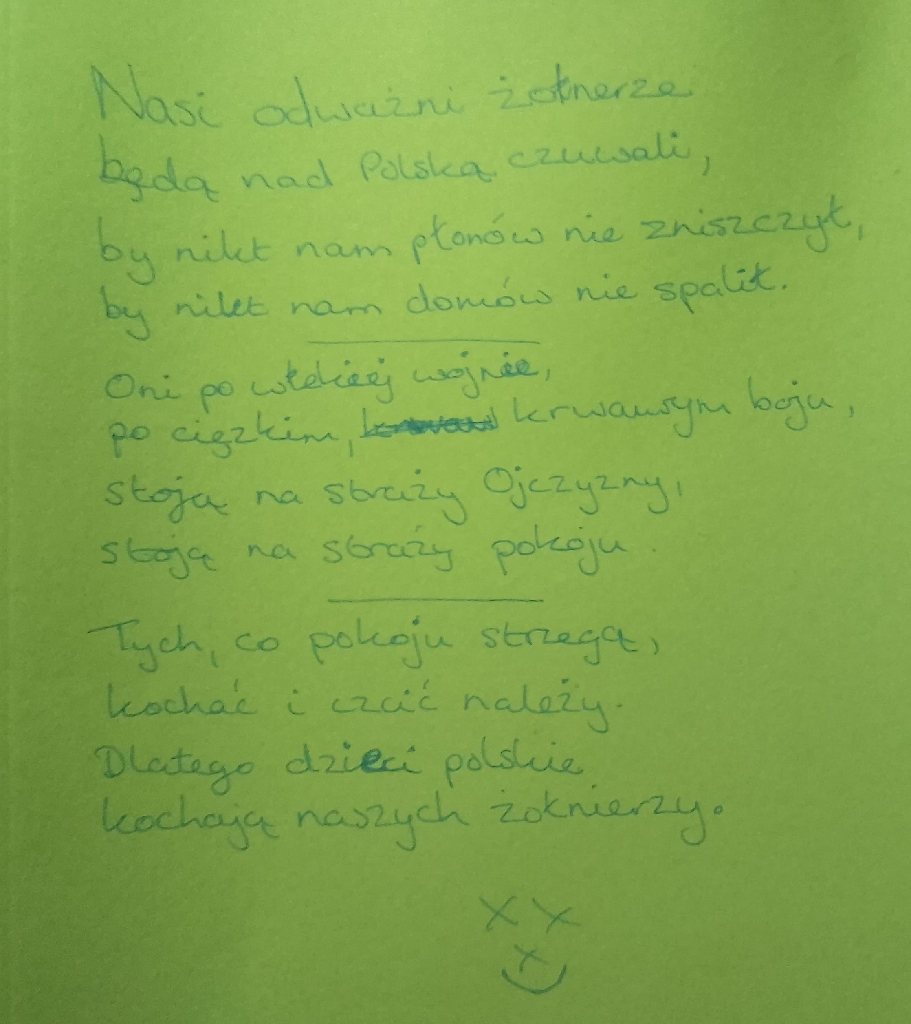 Nasi odważni żołnerze
będą nad Polską czuwali,
by nikt nam płonów nie zniszczył,
by nikt nam domów nie spalił.
Oni po wojnie,
po cięzkim, krwawym boju,
stoją na straży Ojczyzny,
stoją na straży pokoju.
Tych, co pokoju strzegą,
kochać i czcić należy.
Dlatego dzieci polskie
kochają naszych żołnierzy.